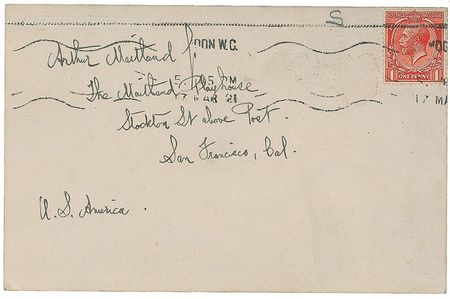 Arthur Maitland
The Maitland Playhouse
Stockton St above Post.
San Francisco, Cal.
U. S. America.
DON W.C.
5 PM
17 MAR 21
ONE PENNY
1 1
17 MA